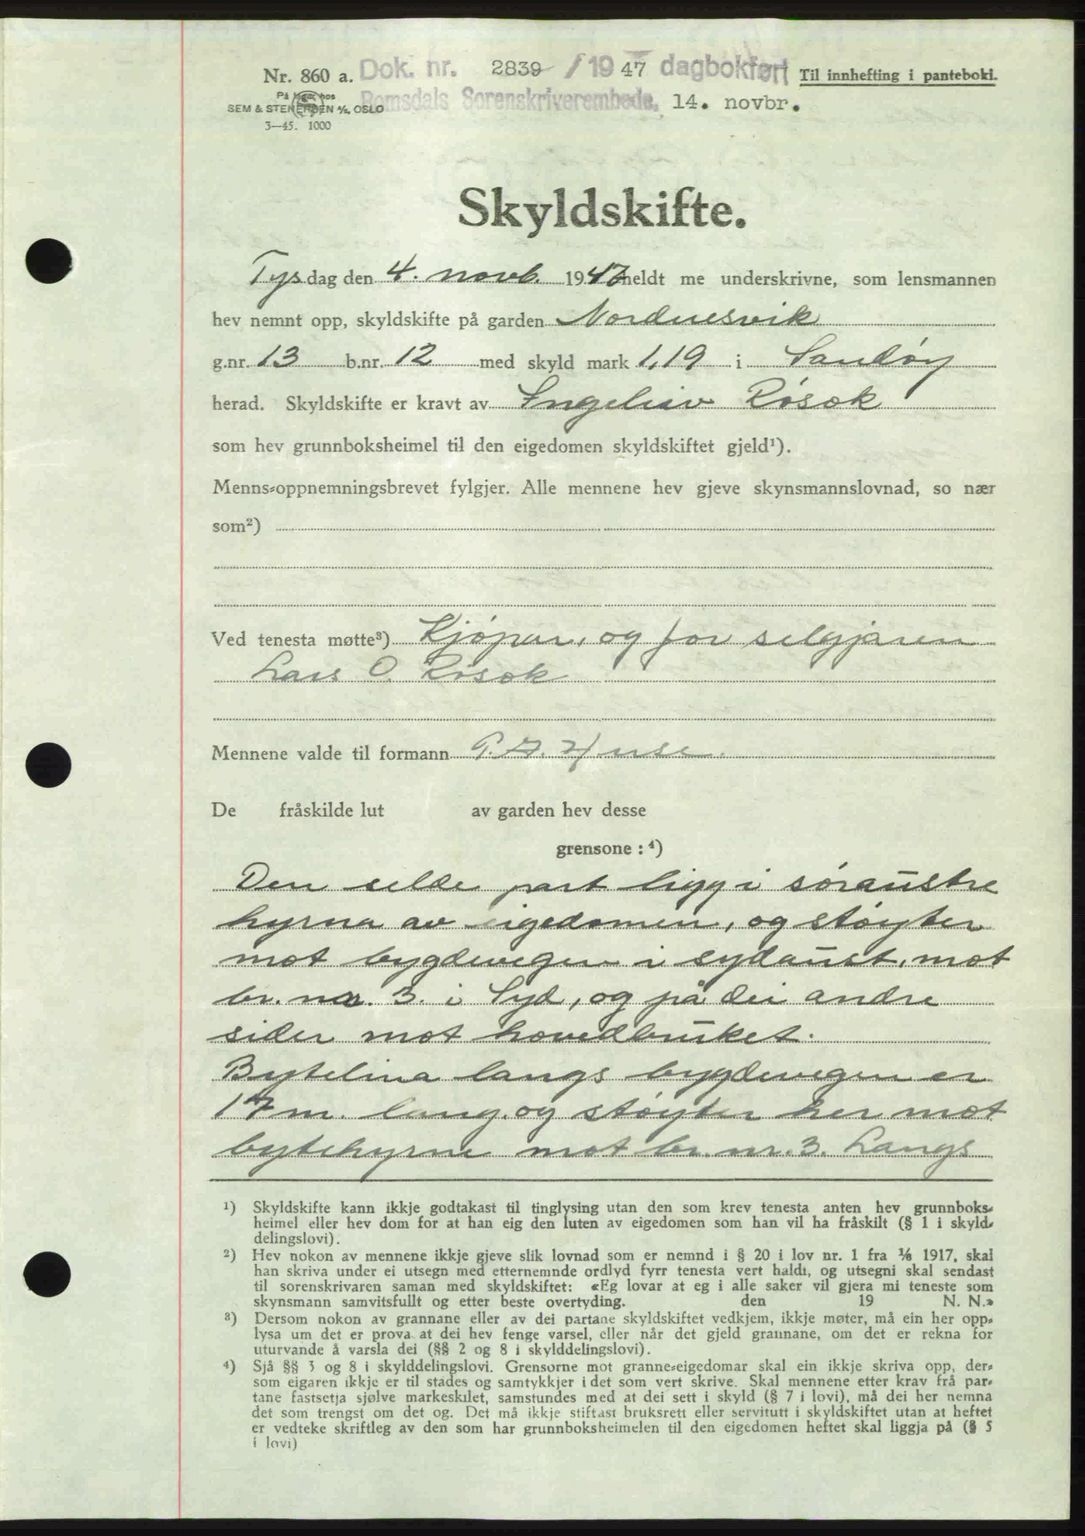 Nr. 860 a. Dok. nr. 2839 / 1947 dagbokført Til innhefting i pantebok.
På lager hos Romsdals Sorenskriverembede, 14. novbr.
SEM & STENERSEN A/S, OSLO
3—45. 1000
Skyldskifte.
Tysdag den 4. novb. 1947 heldt me underskrivne, som lensmannen
hev nemnt opp, skyldskifte på garden Nordnesvik
g.nr. 13 b.nr. 12 med skyld mark 1,19 i Sandøy
herad. Skyldskifte er kravt av Ingeleiv Røsok
som hev grunnboksheimel til den eigedomen skyldskiftet gjeld¹).
Menns-oppnemningsbrevet fylgjer. Alle mennene hev gjeve skynsmannslovnad, so nær
som²)
Ved tenesta møtte³) Kjøpar, og for selgjaren
Lars O. Røsok
Mennene valde til formann Huse.
De fråskilde lut av garden hev desse
grensone : ⁴)
Den selde part ligg i søraustre
hyrna av eigedomen, og støyter
mot bygdevegen i sydaust, mot
br. nr. 3. i Syd, og på dei andre
sider mot hovedbruket.
Bytelina langs bygdevegen er
17 m. lang, og støyter her mot
bytehyrne mot br. nr. 3. Langs
¹) Skyldskifte kann ikkje godtakast til tinglysing utan den som krev tenesta anten hev grunnboks-
heimel eller hev dom for at han eig den luten av eigedomen som han vil ha fråskilt (§ 1 i skyld-
delingslovi).
²) Hev nokon av mennene ikkje gjeve slik lovnad som er nemnd i § 20 i lov nr. 1 fra ¹⁄₆ 1917, skal
han skriva under ei utsegn med etternemnde ordlyd fyrr tenesta vert haldt, og utsegni skal sendast
til sorenskrivaren saman med skyldskiftet: «Eg lovar at eg i alle saker vil gjera mi teneste som
skynsmann samvitsfullt og etter beste overtyding. den 19 N. N.»
³) Dersom nokon av grannane eller av dei partane skyldskiftet vedkjem, ikkje møter, må ein her opp-
lysa um det er prova at dei hev fenge varsel, eller når det gjeld grannane, om det er rekna for
uturvande å varsla dei (§§ 2 og 8 i skylddelingslovi).
⁴) Sjå §§ 3 og 8 i skylddelingslovi. Grensorne mot granne-eigedomar skal ein ikkje skriva opp, der-
som eigaren ikkje er til stades og samtykkjer i det som vert skrive. Skal mennene etter krav frå par-
tane fastsetja sjølve markeskilet, samstundes med at dei sett i skyld (§ 7 i lovi), må dei her nemna
det som trengst om det og. Det må ikkje stiftast bruksrett eller servitutt i skyldskiftet utan at heftet
er vedteke skriftleg av den som har grunnboksheimelen til den eigedomen heftet skal liggja på (§ 5
i lovi)